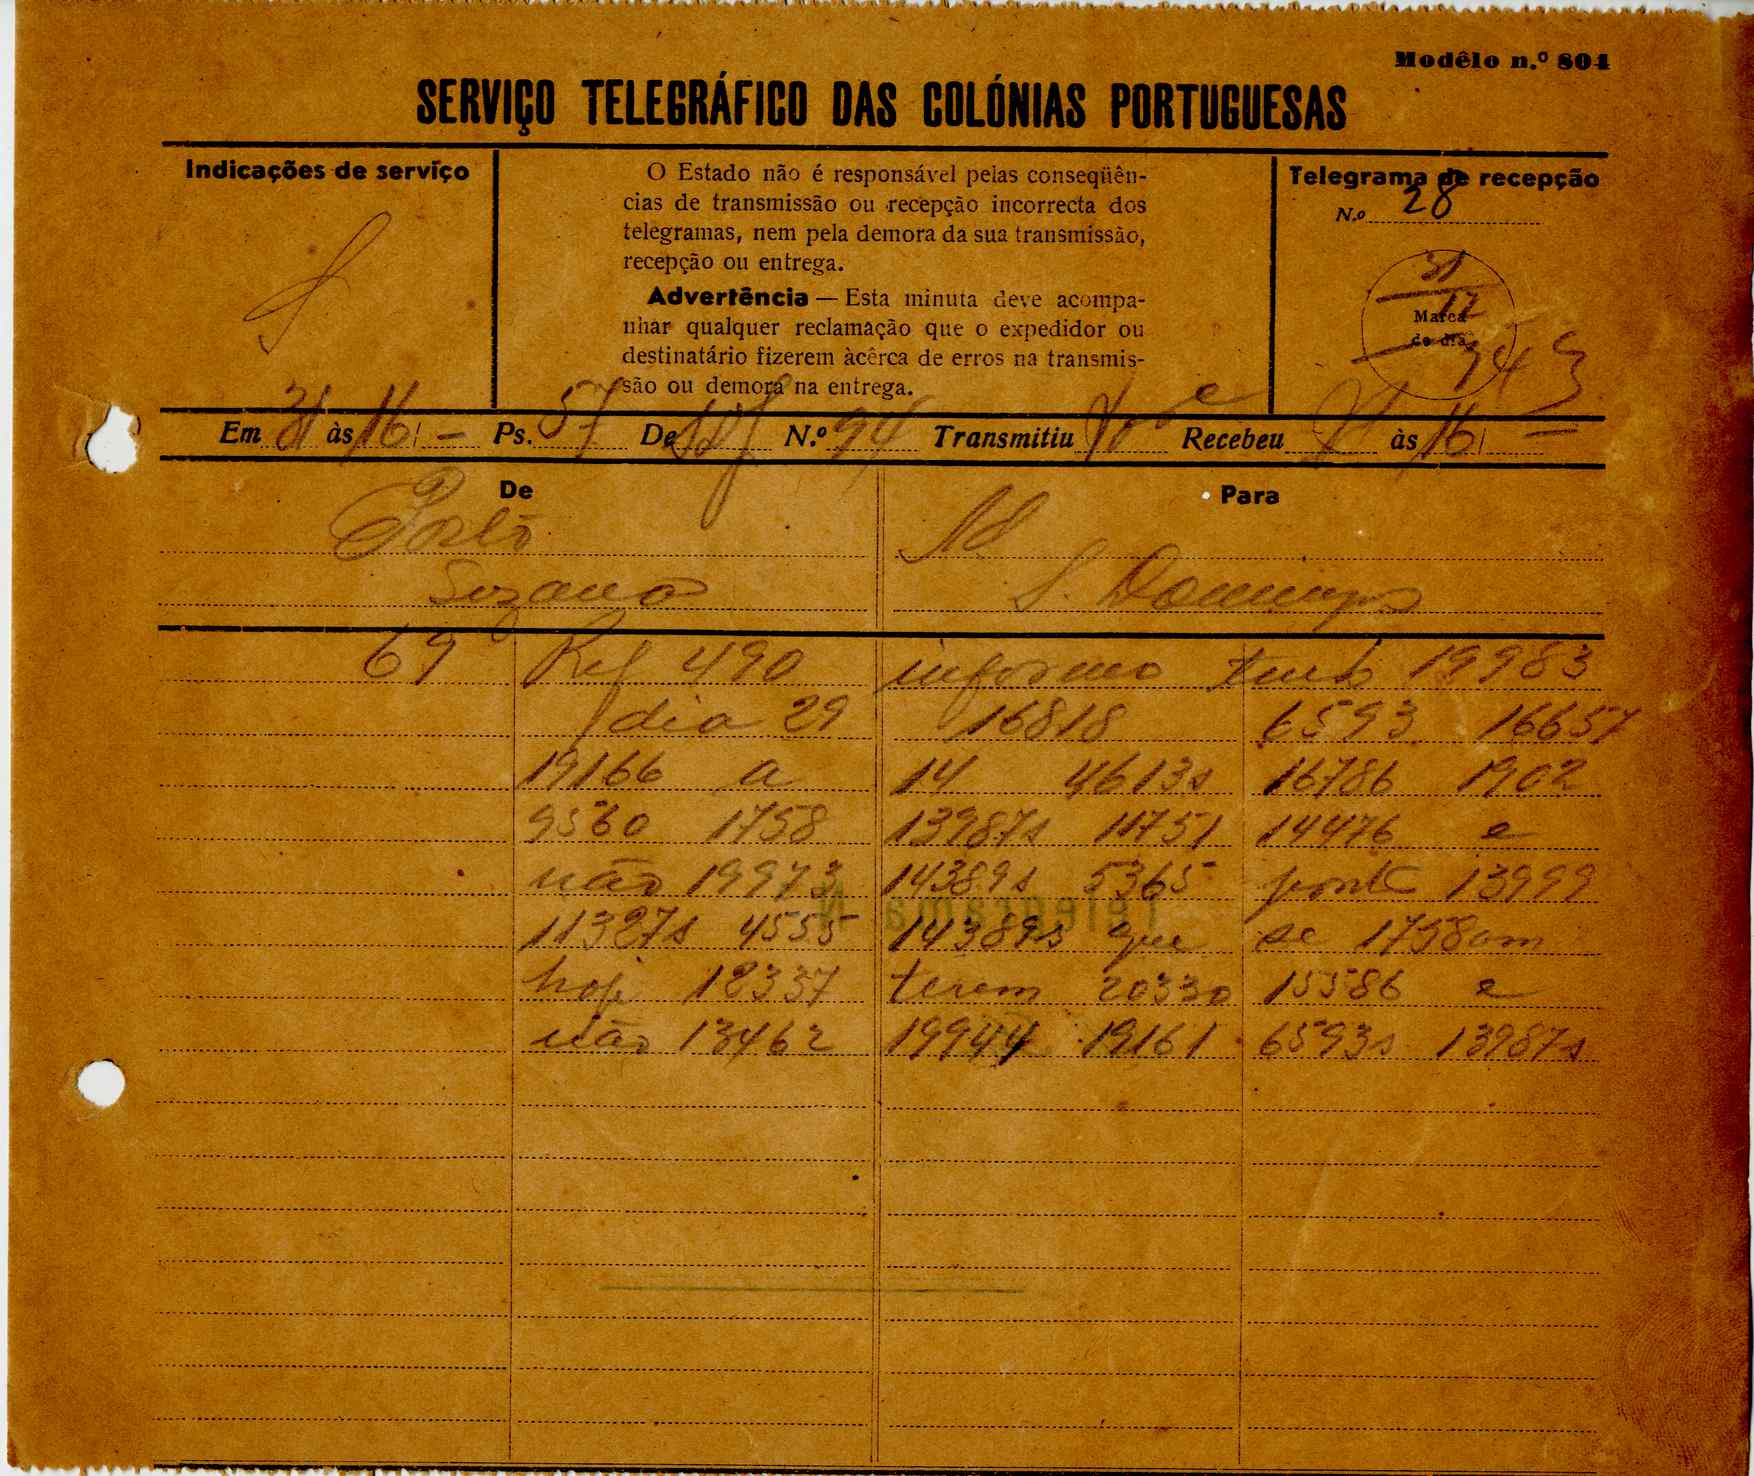 Modêlo n.º 804
SERVIÇO TELEGRÁFICO DAS COLÓNIAS PORTUGUESAS
Indicações de serviço
S
O Estado não é responsável pelas conseqüên-
cias de transmissão ou recepção incorrecta dos
telegramas, nem pela demora da sua transmissão,
recepção ou entrega.
Advertência — Esta minuta deve acompa-
nhar qualquer reclamação que o expedidor ou
destinatário fizerem àcêrca de erros na transmis-
são ou demora na entrega.
Telegrama de recepção
N.º 28
31
12
Marca
do dia
943
Em 31 às 16 - Ps. 57 De N.º 94 Transmitiu Recebeu às 16
De
Para
S. Domingos
69 Ref 490 informo 19983
dia 29 16818 6593 16657
19166 a 14 4613s 16786 1902
9560 1758 13987s 11751 14476 e
não 19973 14389s 5365 ponte 13999
11327s 4555 14389s que se 1758am
hoje 12337 terem 20330 15586 e
não 13462 19944 19161 6593s 13987s
Telegrama N